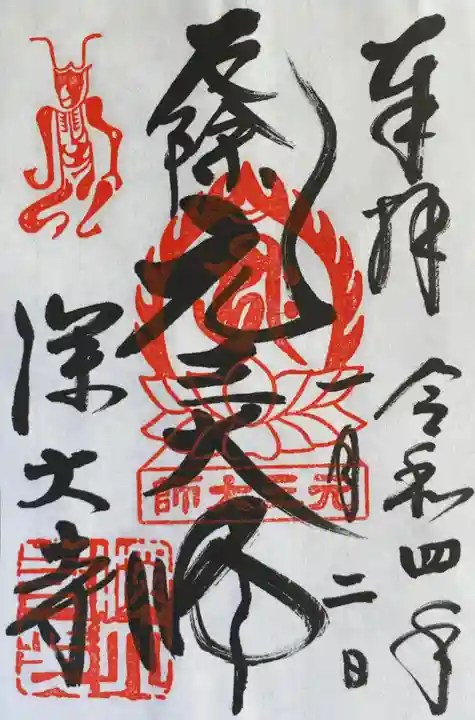 奉拝
令和四年
一月二日
厄除
元三大師
元三大師
深大寺